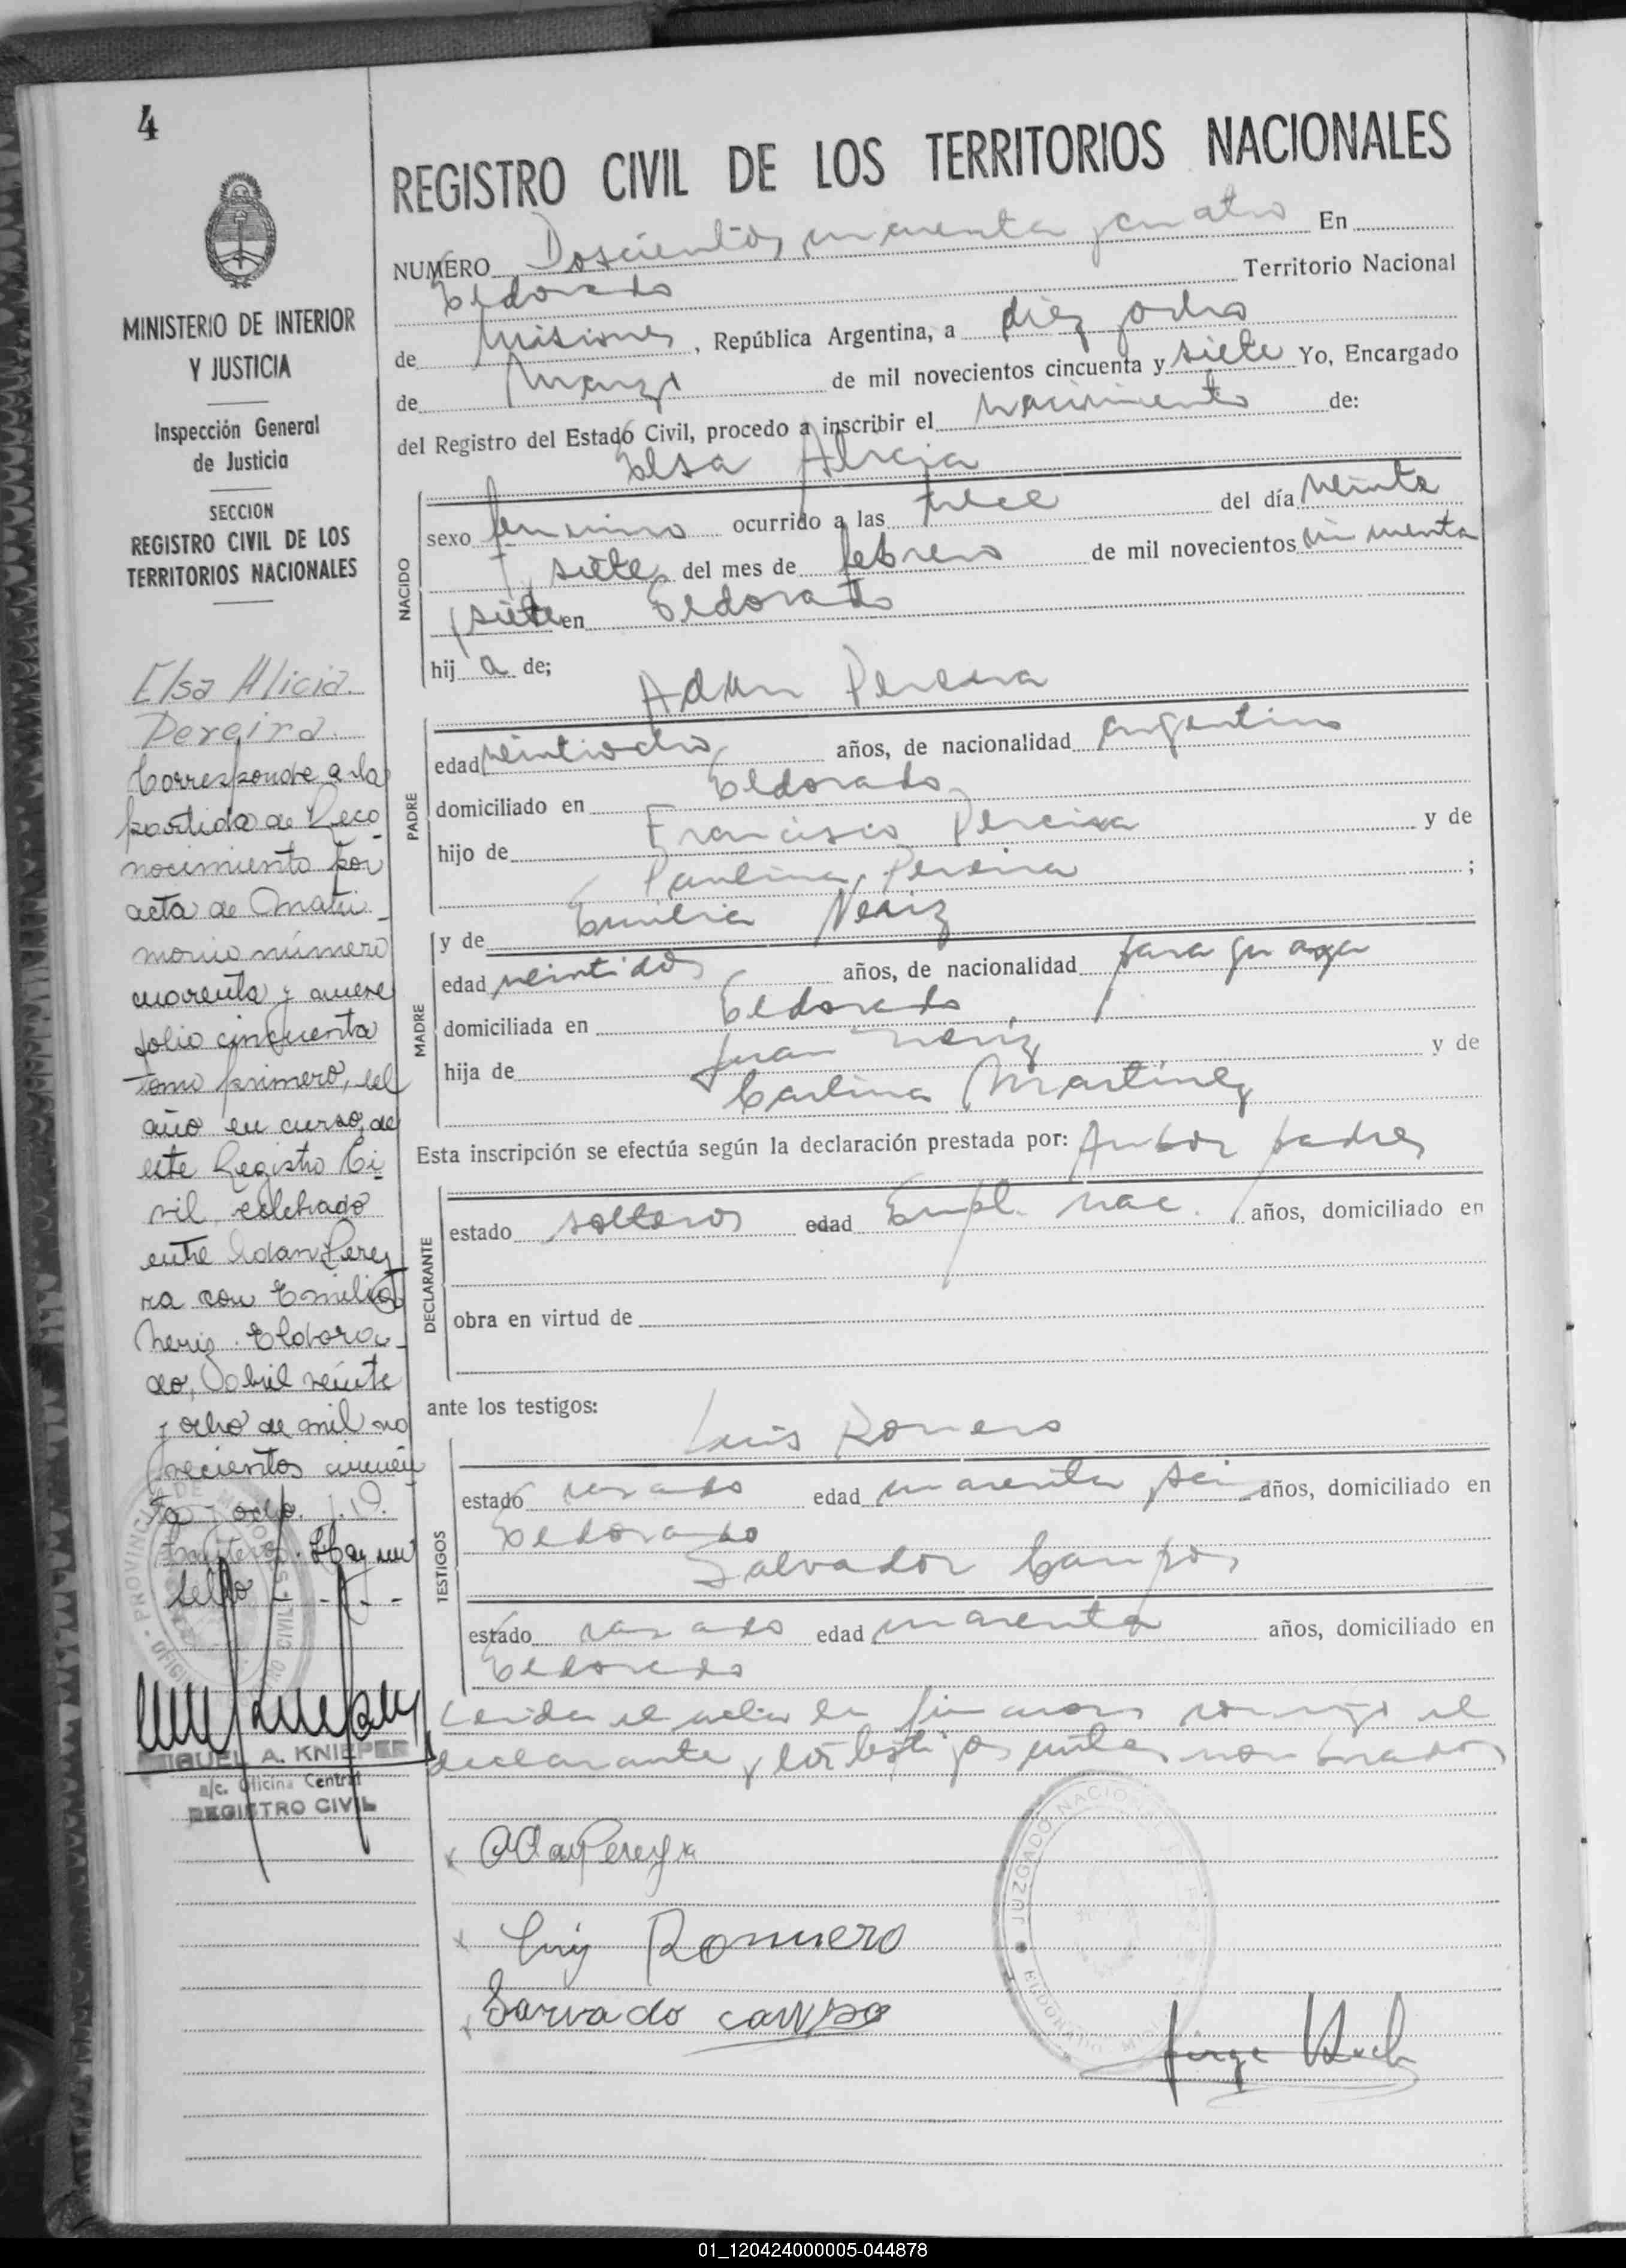 4
MINISTERIO DE INTERIOR
Y JUSTICIA
Inspección General
de Justicia
SECCION
REGISTRO CIVIL DE LOS
TERRITORIOS NACIONALES
Elsa Alicia
Pereira.
Corresponde a la
partida de Reco
nocimiento por
acta de Matri-
monio número
cuarenta y nueve
folio cincuenta
tomo primero, del
año en curso, de
este Registro Ci
vil, celebrado
entre Adan Perey
ra con Emilia
Neriz. Eldora-
do, Abril veinte
y ocho de mil no
vecientos cincuen
ta y ocho.
Hay un
sello
MIGUEL A. KNIEPER
a/c. Oficina Central
REGISTRO CIVIL
REGISTRO CIVIL DE LOS TERRITORIOS NACIONALES
NUMERO Doscientos cuarenta y cuatro En
Eldorado Territorio Nacional
de Misiones, República Argentina, a diez y ocho
de Marzo de mil novecientos cincuenta y siete Yo, Encargado
del Registro del Estado Civil, procedo a inscribir el nacimiento de:
Elsa Alicia
NACIDO
sexo femenino ocurrido a las trece del día veinte
y siete del mes de febrero de mil novecientos cincuenta
y siete en Eldorado
hija de;
Adan Pereira
PADRE
edad veintiocho años, de nacionalidad argentino
domiciliado en Eldorado
hijo de Francisco Pereira y de
Paulina Pereira ;
y de Emilia Neriz
MADRE
edad veintidos años, de nacionalidad paraguaya
domiciliada en Eldorado
hija de Juan Neriz y de
Carlina Martinez
Esta inscripción se efectúa según la declaración prestada por: Ambos padres
DECLARANTE
estado solteros edad Empl. nac. años, domiciliado en
obra en virtud de
ante los testigos:
Luis Romero
TESTIGOS
estado casado edad cuarenta y seis años, domiciliado en
Eldorado
Salvador Campos
estado casado edad cuarenta años, domiciliado en
Eldorado
Leida el acta la firmaron conmigo el
declarante y los testigos antes nombrados
Adan Pereyra
Luis Rommero
Sarvado campo
JUZGADO NACIONAL
ELDORADO
Jorge
01_120424000005-044878